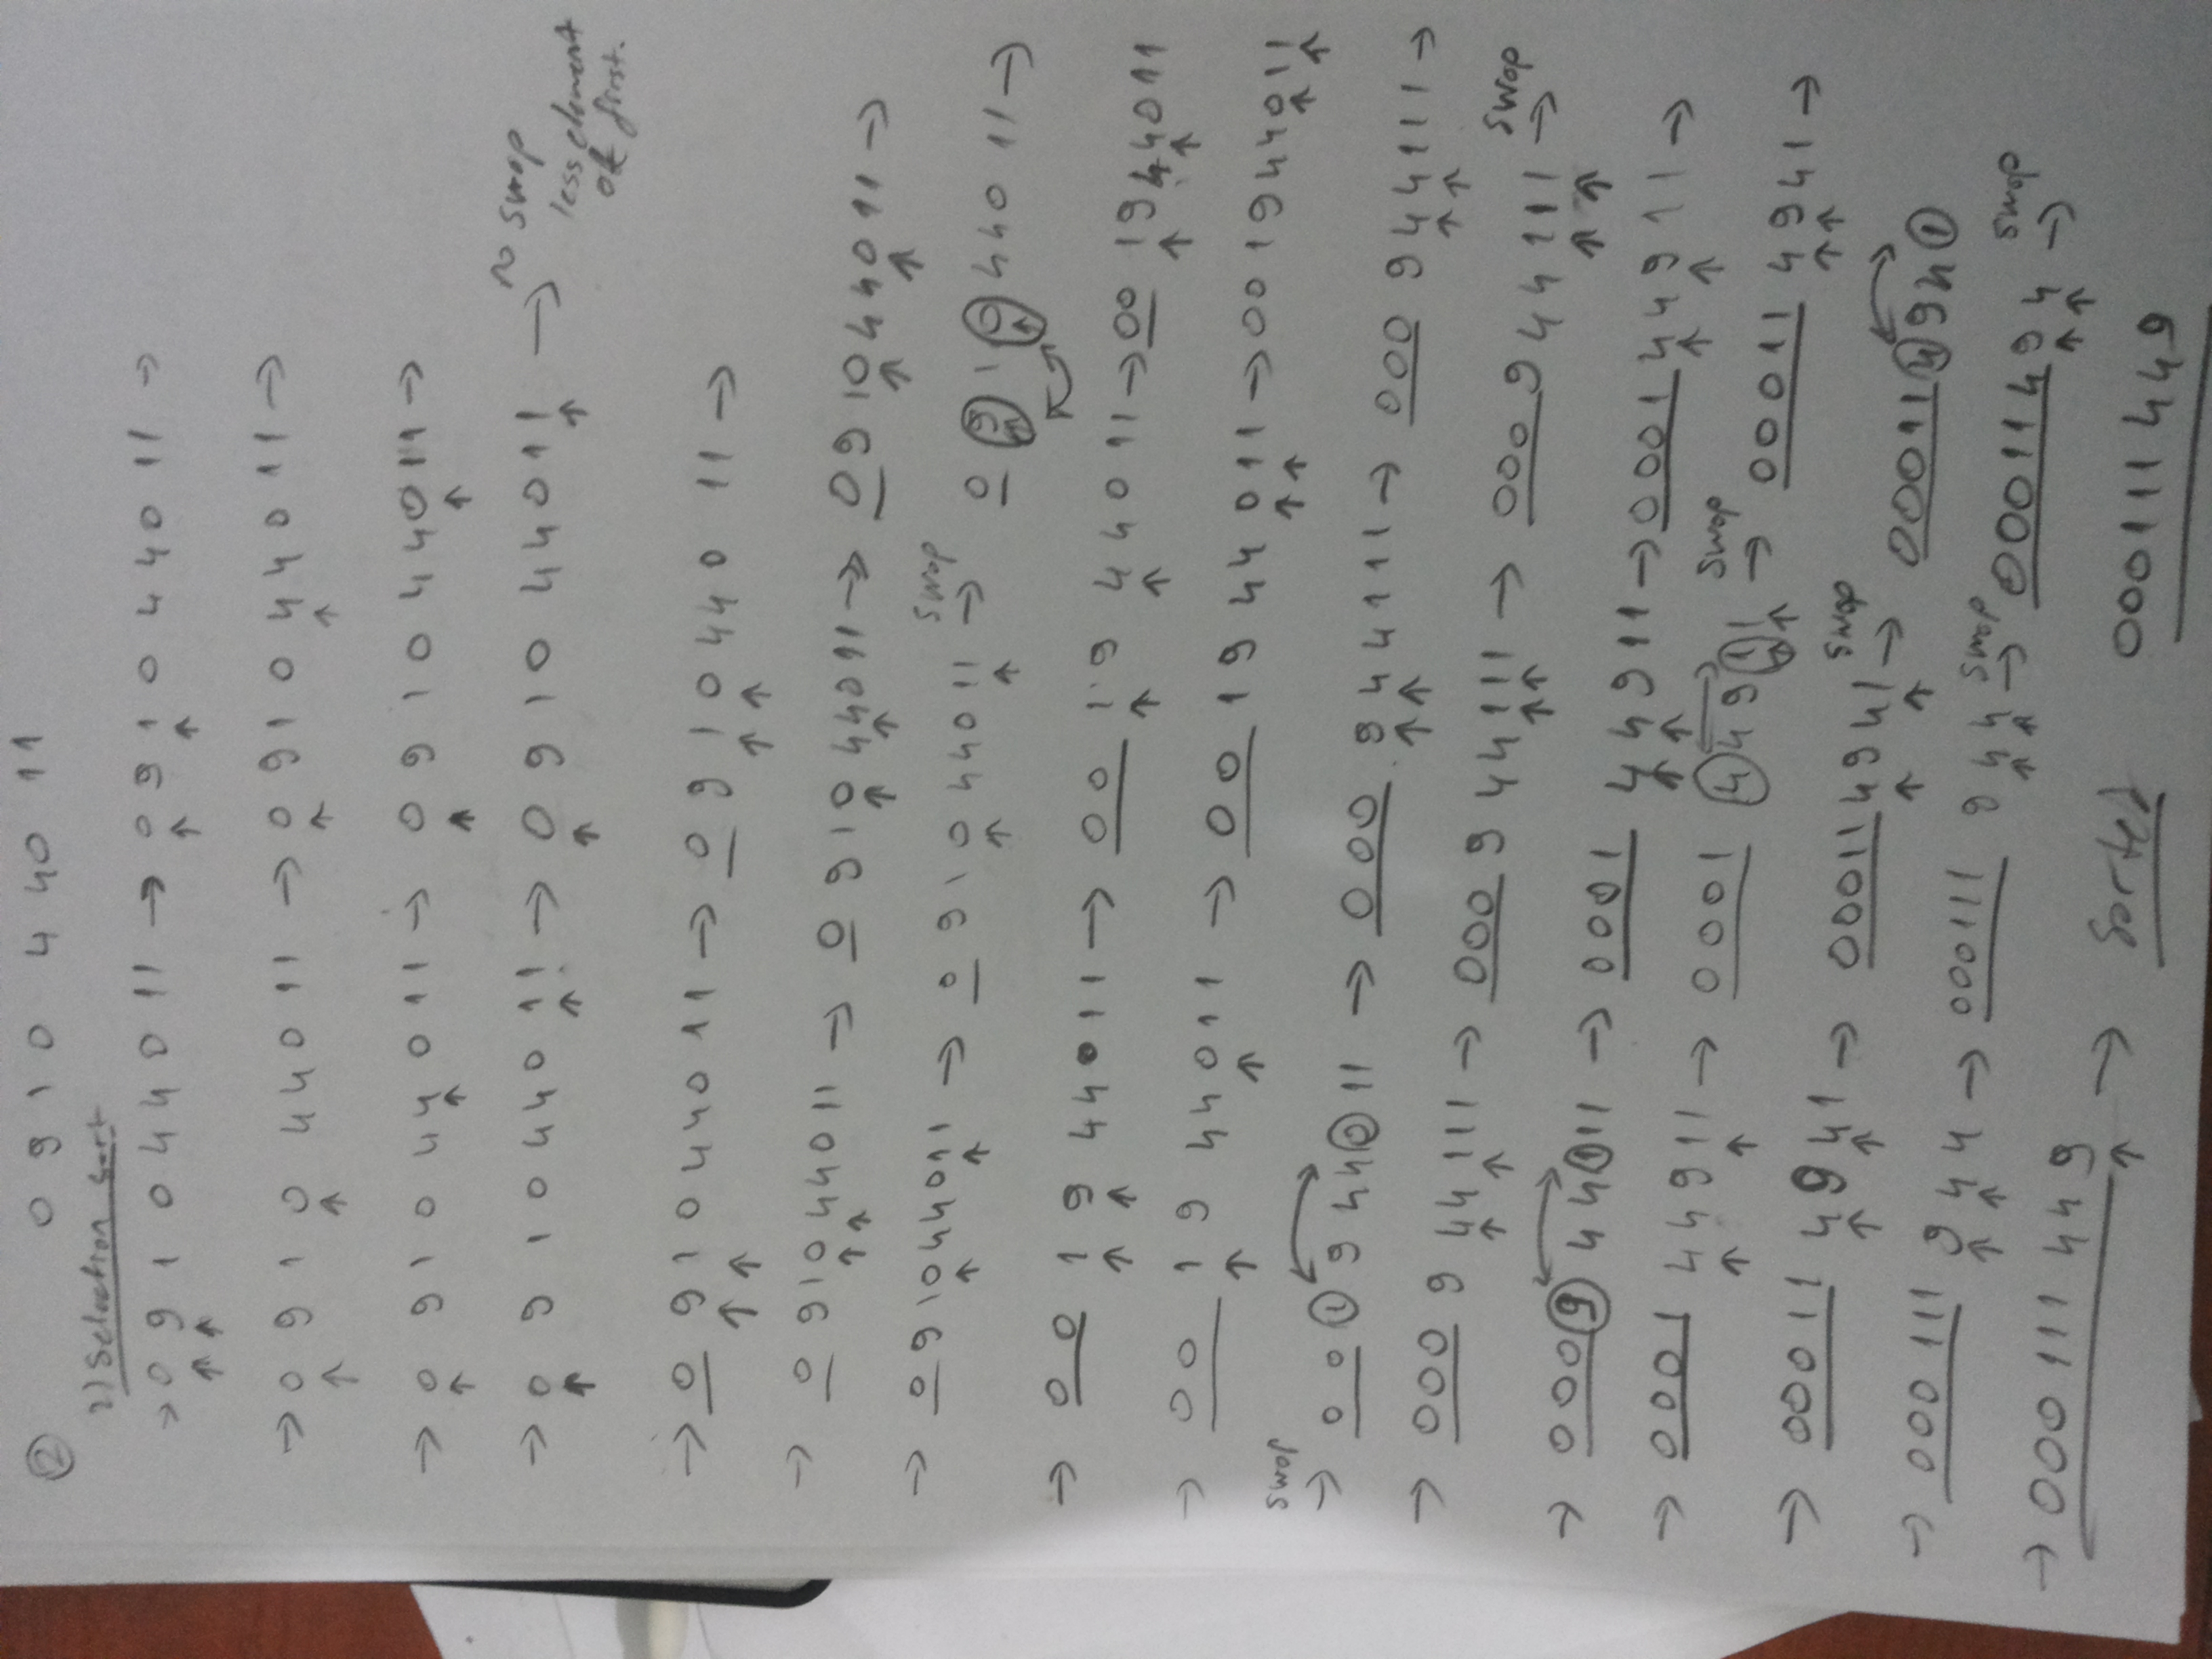 ② 0 9 1 0 4 4 0 1 1
2) Selection sort
→ 0 9 1 0 4 4 0 1 1 → 0 9 1 0 4 4 0 1 1 →
→ 0 9 1 0 4 4 0 1 1 → 0 9 1 0 4 4 0 1 1 →
→ 0 9 1 0 4 4 0 1 1 → 0 9 1 0 4 4 0 1 1 →
→ 0 9 1 0 4 4 0 1 1 → 0 9 1 0 4 4 0 1 1 → ~ swap
less element
of first.
→ 0 9 1 0 4 4 0 1 1 → 0 9 1 0 4 4 0 1 1 →
→ 0 9 1 0 4 4 0 1 1 → 0 9 1 0 4 4 0 1 1 → 0 9 1 0 4 4 0 1 1 →
→ 0 9 1 0 4 4 0 1 1 → 0 9 1 0 4 4 0 1 1 → swap 0 9 1 0 4 4 0 1 1 →
→ 0 0 1 9 4 4 0 1 1 → 0 0 1 9 4 4 0 1 1 → 0 0 1 9 4 4 0 1 1
→ 0 0 1 9 4 4 0 1 1 → 0 0 1 9 4 4 0 1 1 → 0 0 1 9 4 4 0 1 1
swap → 0 0 1 9 4 4 0 1 1 → 0 0 0 9 4 4 1 1 1 → 0 0 0 9 4 4 1 1 1 →
→ 0 0 0 9 4 4 1 1 1 → 0 0 0 9 4 4 1 1 1 → 0 0 0 9 4 4 1 1 1 → swap
→ 0 0 0 9 4 4 1 1 1 → 0 0 0 1 4 4 9 1 1 → 0 0 0 1 4 4 9 1 1 →
→ 0 0 0 1 4 4 9 1 1 → 0 0 0 1 4 4 9 1 1 → swap 0 0 0 1 1 4 9 4 1 →
→ 0 0 0 1 1 4 9 4 1 → 0 0 0 1 1 4 9 4 1 → swap 0 0 0 1 1 4 9 4 1
→ 0 0 0 1 1 1 9 4 4 → 0 0 0 1 1 1 9 4 4 → swap 0 0 0 1 1 4 9 4 → swap
→ 0 0 0 1 1 1 4 4 9 → Sorted 0 0 0 1 1 1 4 4 9